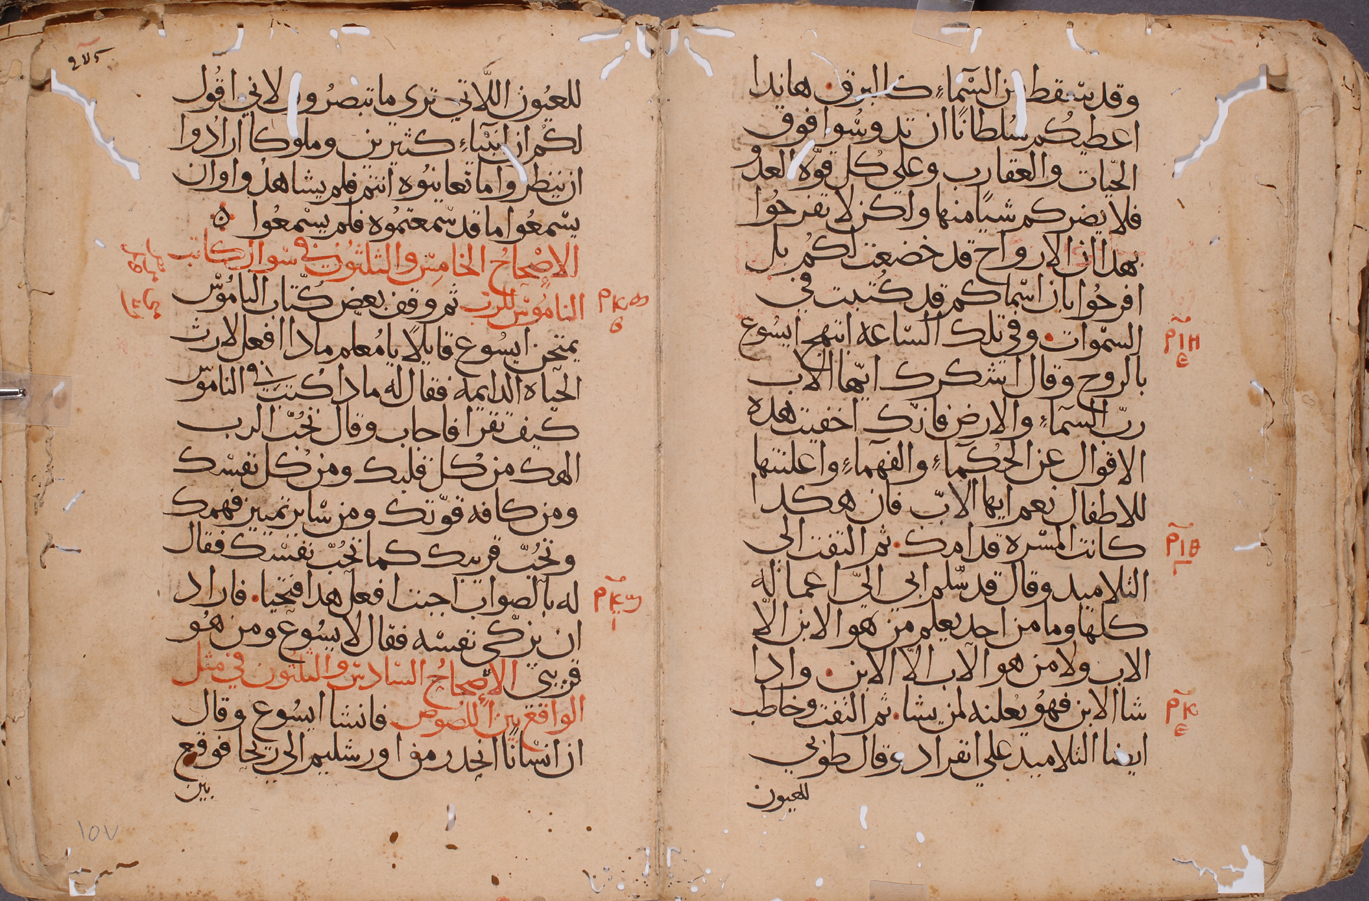 وقد سقط من السماء كالبرق. هاندا
اعطيكم سلطانًا ان تدوسوا فوق
الحيات والعقارب وعلي كل قوة العدو
فلا يضركم شيًا منها ولكن لا تفرحوا
بهدا ان الارواح قد خضعت لكم بل
افرحوا بان اسماكم قد كتبت في
السموات. وفي تلك الساعه ابتهج ايسوع
بالروح وقال اشكرك ايها الاب
رب السماء والارض فانك اخفيت هده
الاقوال عن الحكماء والفهماء واعلنتها
للاطفال نعم ايها الاب فان هكدا
كانت المسرة قدامك. ثم التفت الي
التلاميد وقال قد سلم ابي اليّ اعمالة
كلها وما من احد يعلم من هو الابن الّا
الاب ولا من هو الاب الّا الابن. وادا
شا الابن فهو يعلنه لمن يشا. ثم التفت وخاطب
ايضا التلاميد علي انفراد وقال طوبي
للعيون
ⲣⲓⲏ
ⲣⲓⲑ
ⲣⲕ
٢٧٥
للعيون اللاتي تري ما تبصرون لاني اقول
لكم ان انبياء كثيرين وملوكا ارادوا
ان ينظروا ما تعاينوه انتم فلم يشاهدوا وان
يسمعوا ما قد سمعتموه فلم يسمعوا
الاصحاح الخامس والثلثون في سوال كاتب
الناموس للرب ثم وقف بعض كتاب الناموس
يمتحن ايسوع قايلًا يا معلم مادا افعل لارث
الحياه الدايمه فقال له مادا كتب في الناموس
كيف تقرا فاجاب وقال تحب الرب
الهك من كل قلبك ومن كل نفسك
ومن كافه قوتك ومن ساير تمييز فهمك
وتحب قريبك كما تحب نفسك فقال
له بالصواب اجبت افعل هدا فتحيا. فاراد
ان يزكي نفسه فقال لايسوع ومن هو
قريبي الاصحاح السادس والثلثون في مثل
الواقع بين اللصوص فانشا ايسوع وقال
ان انسانًا انحدر من اورشليم الي ريحا فوقع
بين
١٥٧